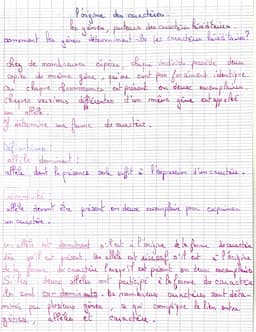 l'origine des caractères.
les gènes, porteurs des caractères héréditaires
comment les gènes déterminent-ils les caractères héréditaires?
chez de nombreuses espèces, chaque individu possède deux
copies du même gène, qui ne sont pas forcément identique
car chaque chromosomes est présent en deux exemplaires.
chaques versions différentes d'un même gène est appelée
un allèle.
Il détermine une forme de caractère.
Définitions:
allèle dominant:
allèle dont la présence seule suffit à l'expression d'un caractère.
allèle devant être présent en deux exemplaire pour exprimer
un caractère.
un allèle est dominant s'il est à l'origine de la forme du caractère
dès qu'il est présent, un allèle est récessif s'il est à l'origine
de la forme du caractère lorsqu'il est présent en deux exemplaires
Si les deux allèles ont participé à la forme du caractère
ils sont co-dominants. De nombreux caractères sont déter-
minés par plusieurs gènes, ce qui complique le lien entre
gènes, allèles et caractère.